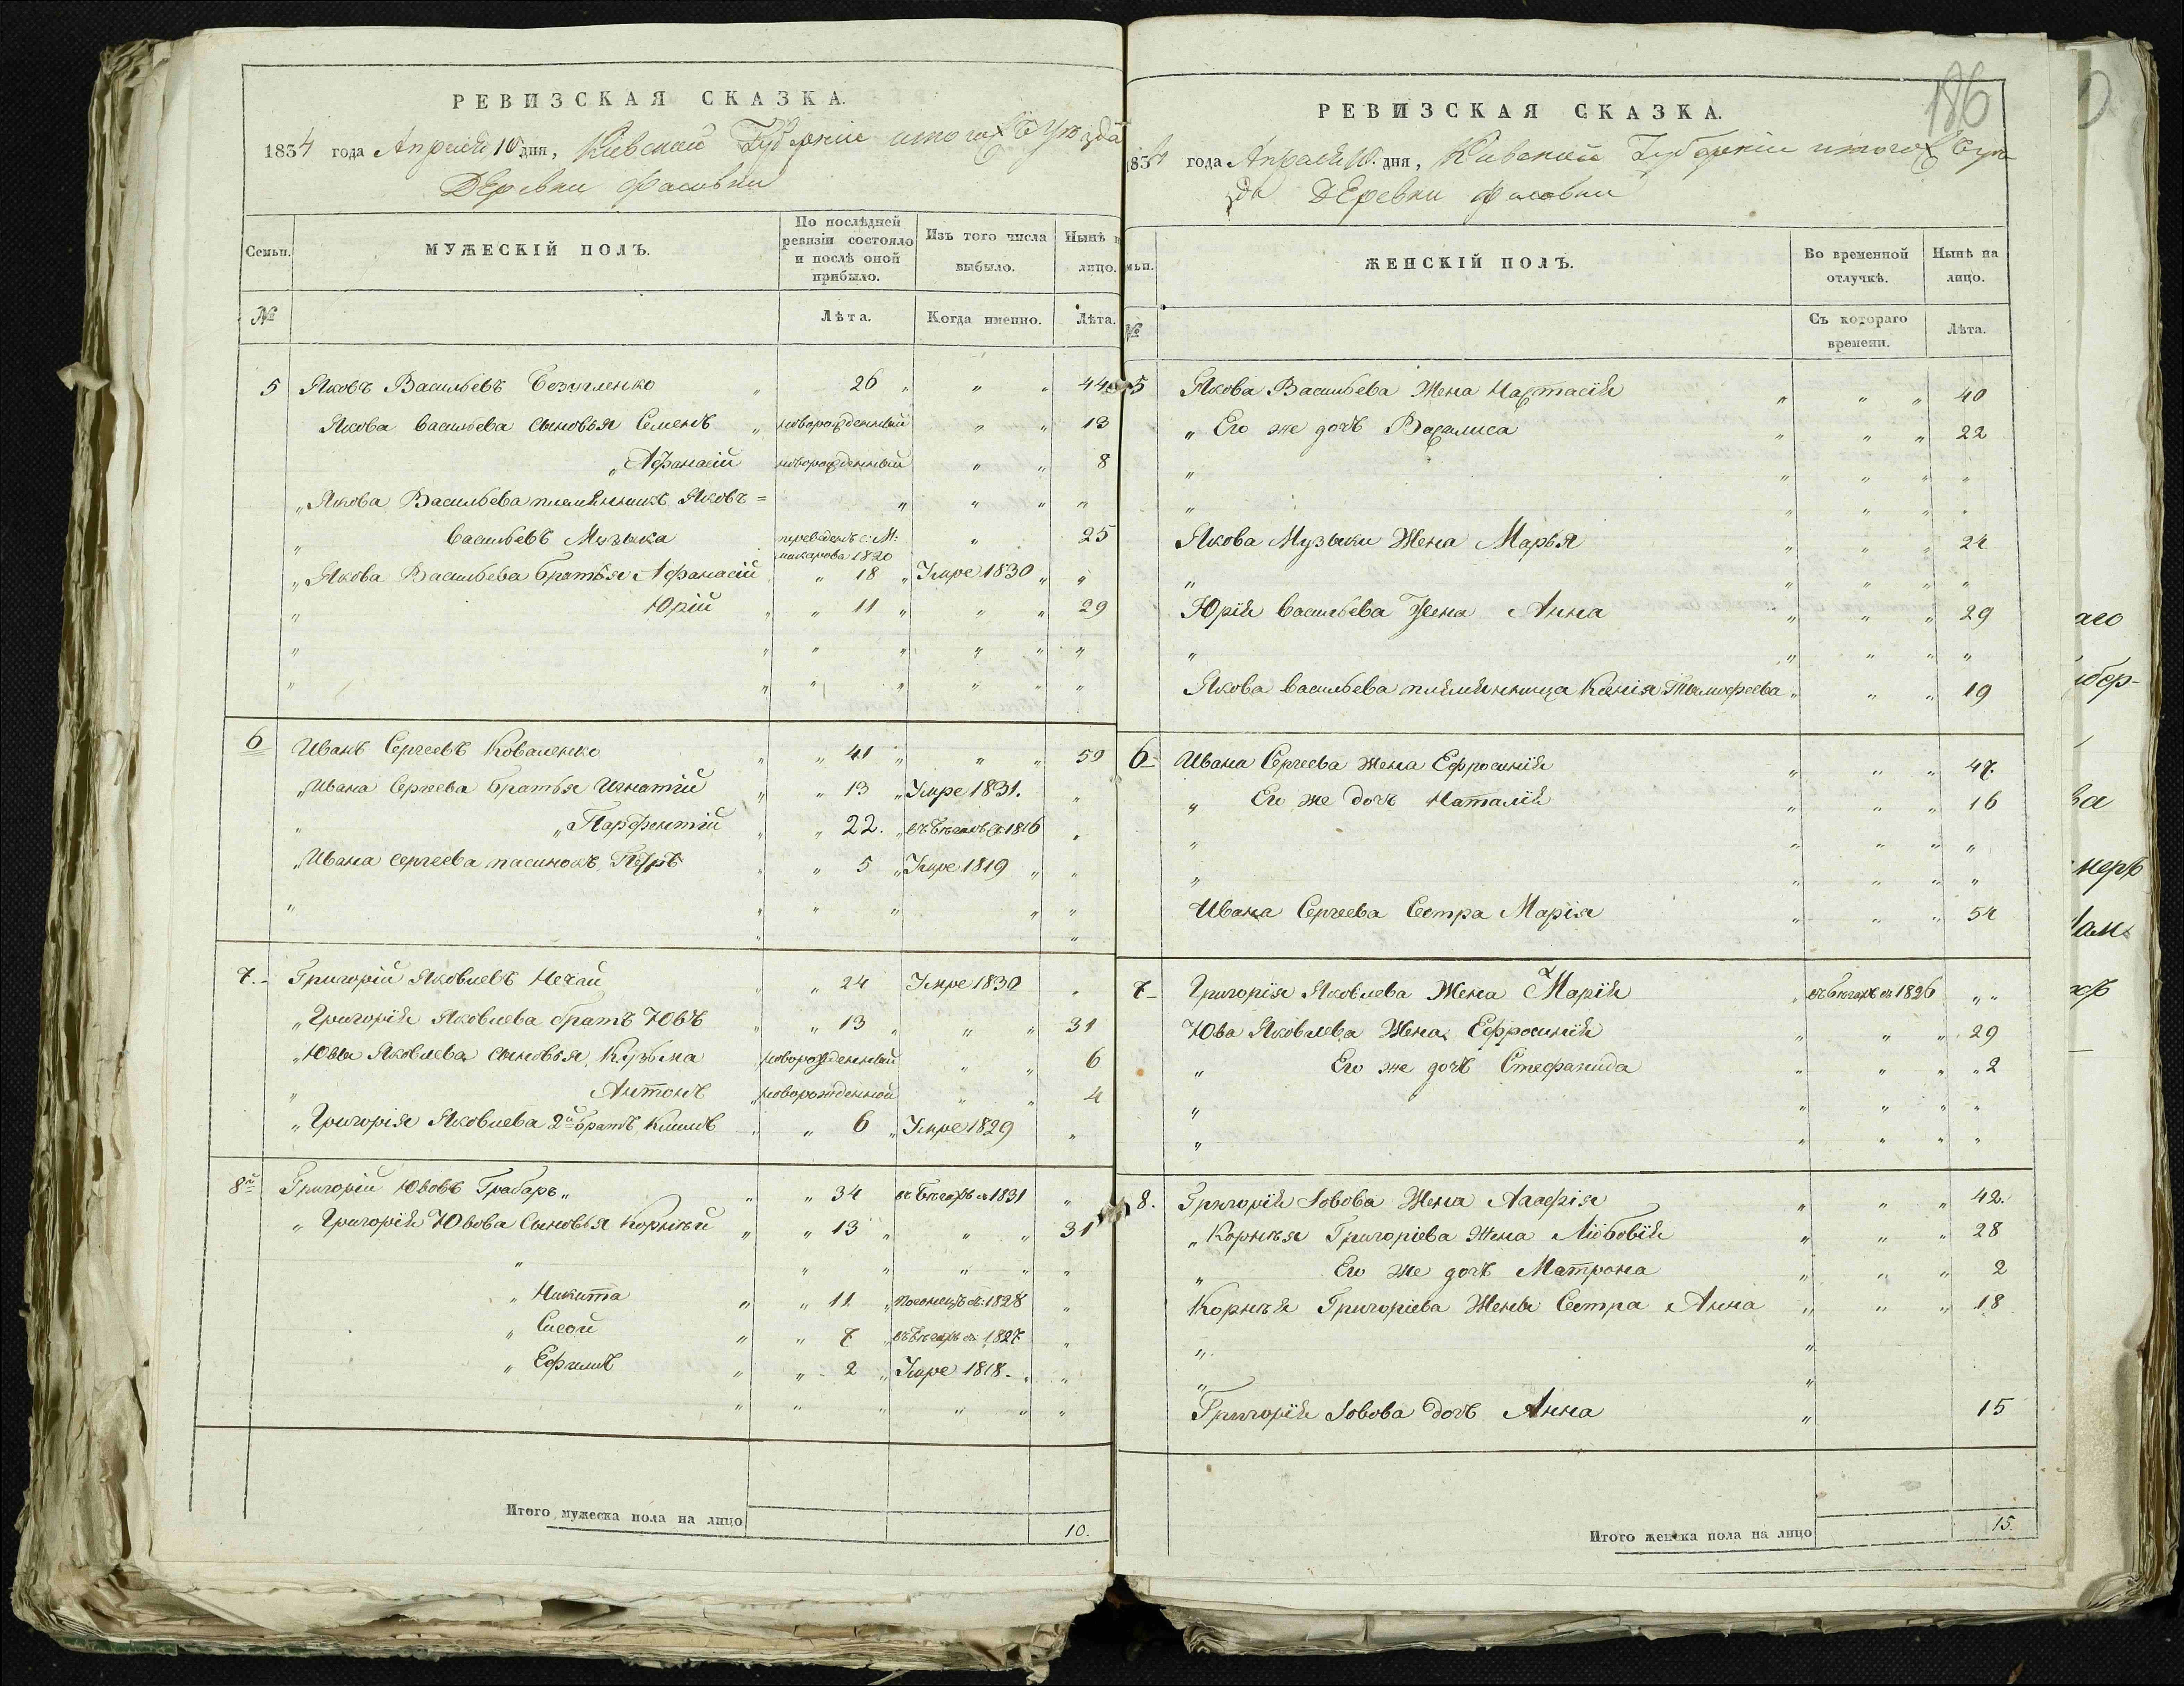 РЕВИЗСКАЯ СКАЗКА.
1834 года Апреля 10 дня, Кіевской Губерніи итогожъ Уѣзда
ДЕревни Фасовки
Семьи.
МУЖЕСКІЙ ПОЛЪ.
По послѣдней ревизіи состояло и послѣ оной прибыло.
Изъ того числа выбыло.
Нынѣ н лицо.
№
Лѣта.
Когда именно.
Лѣта.
5 Яковъ Васильевъ Безугленко " 26 " " " 44
Якова Васильева Сыновья Семенъ " новорожденный " " 13
" Афанасій новорожденный " " 8
" Якова Васильева племянникъ Яковъ = " " " "
" Васильевъ Музыка переведенъ с: М: макарова 1820 " 25
" Якова Васильева братья Афанасій " 18 " Умре 1830 " "
" Юрій " " 11 " " " 29
" " " " " " "
" " " " " " "
6 Иванъ Сергеевъ Коваленко " " 41 " " " 59
" Ивана Сергеева братья Игнатій " " 13 " Умре 1831. "
" " Парфентій " " 22. " въ бегахъ съ 1816 "
" Ивана Сергеева пасинокъ Петръ " " 5 " Умре 1819 " "
" " " " " "
" "
7. - Григорій Яковлевъ Нечай " " 24 Умре 1830 "
" Григорія Яковлева братъ Ювъ " " 13 " " " 31
" Юва Яковлева сыновья Кузьма новорожденный " " 6
" Антонъ " новорожденной " " 4
" Григорія Яковлева 2й братъ Климъ " " 6 " Умре 1829 "
8й Григорій Ювовъ Грабаръ " " " 34 въ бегахъ съ 1831 "
" Григорія Ювова Сыновья Корнѣй " " 13 " " " 31
" " " " " "
" Никита " " 11 " съ: 1828 "
" Сисой " " 7 " въ бегахъ съ 1827 "
" Ефимъ " " 2 " Умре 1818 - " "
" " " " " "
Итого мужеска пола на лицо 10.
186
РЕВИЗСКАЯ СКАЗКА.
1834 года Апреля 10. дня, Кіевской Губерніи итогожъ Уѣ
зда ДЕревни Фасовки
мьи.
ЖЕНСКІЙ ПОЛЪ.
Во временной отлучкѣ.
Нынѣ на лицо.
№
Съ котораго времени.
Лѣта.
5 Якова Васильева Жена Настасія " " " 40
" Его же дочь Васалиса " " " 22
" " " " "
" " " " "
Якова Музыки Жена Марья " " " 24
" " " " "
Юрія Васильева Жена Анна " " " 29
" " " " "
Якова Васильева племянница Ксенія Тимофеева " " " 19
6 - Ивана Сергеева Жена Ефросинія " " " 47.
" Его же дочь Наталія " " " 16
" " " " "
" " " " "
Ивана Сергеева Сестра Марія " " " 54
7 - Григорія Яковлева Жена Марія " въ бегахъ съ 1826 " "
Юва Яковлева Жена Ефросинія " " " 29
" Его же дочь Стефанида " " " " 2
" " " " "
" " " " "
8. Григорія Іовова Жена Агафія " " " 42.
" Корнѣя Григоріева Жена Любовія " " " 28
" Его же дочь Матрона " " " 2
Корнѣя Григоріева Жены Сестра Анна " " " 18
" "
" "
Григорія Іовова дочь Анна " 15
Итого женска пола на лицо 15.